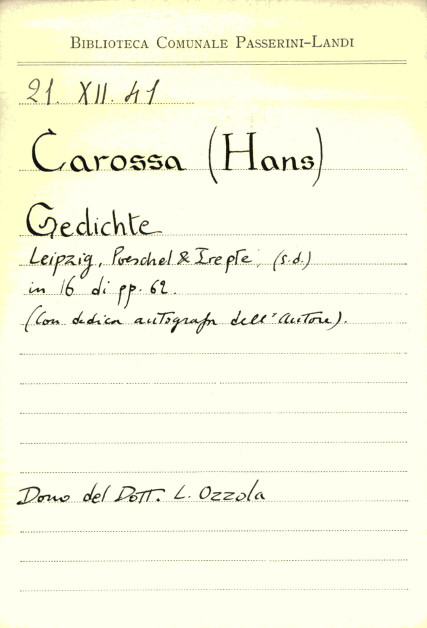 BIBLIOTECA COMUNALE PASSERINI-LANDI
21. XII. 41
Carossa (Hans)
Gedichte
Leipzig, Poeschel & Trepte, (s.d.)
in 16 di pp. 62.
(Con dedica autografa dell'Autore).
Dono del Dott. L. Ozzola